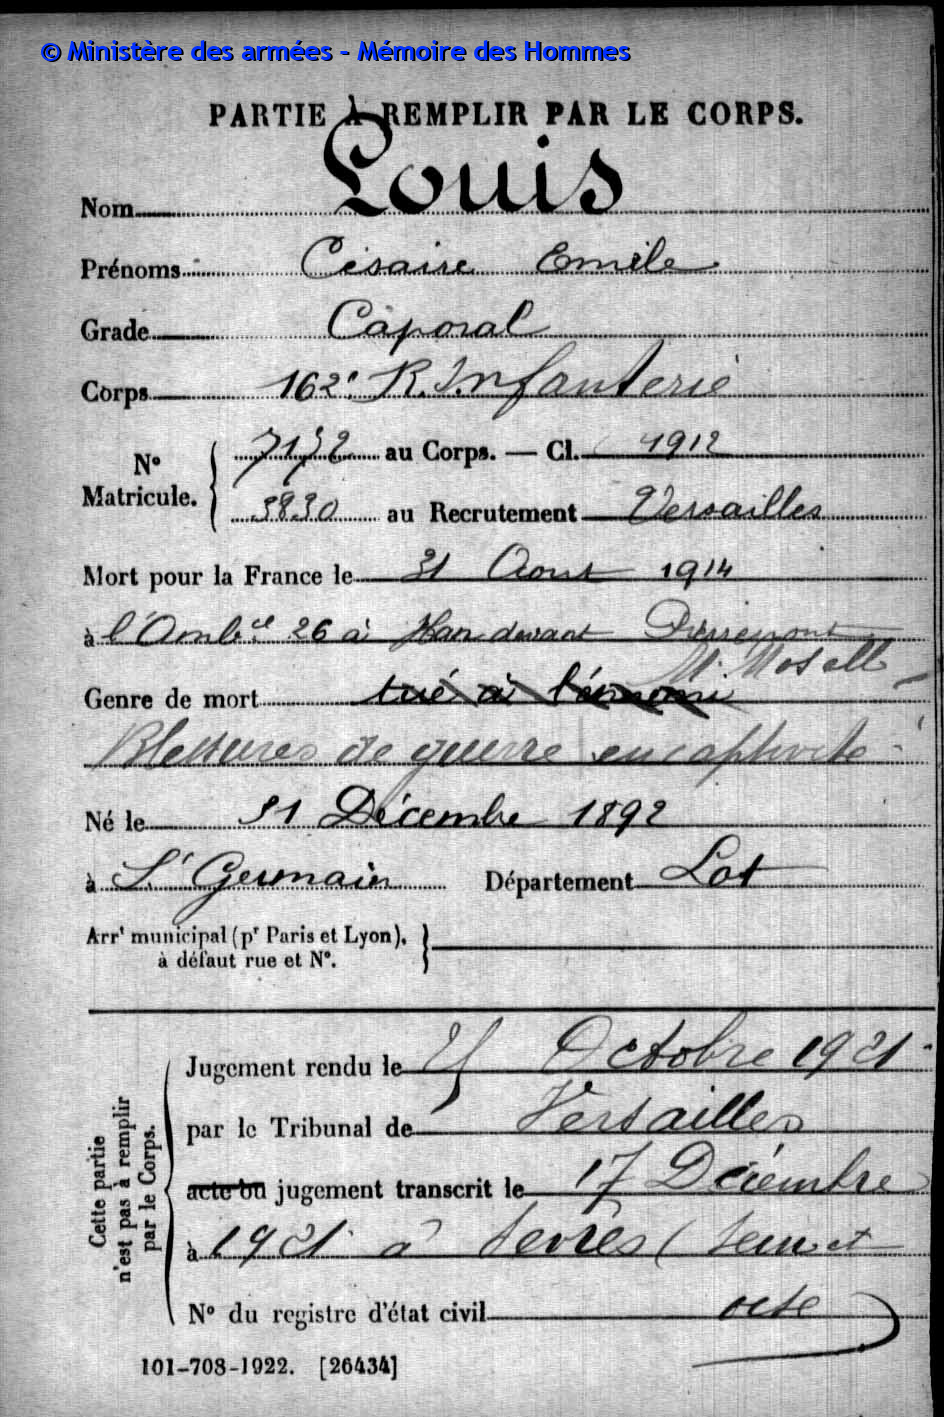 © Ministère des armées - Mémoire des Hommes
PARTIE À REMPLIR PAR LE CORPS.
Nom Louis
Prénoms Césaire Emile
Grade Caporal
Corps 162e R. Infanterie
N° Matricule. 7172 au Corps. — Cl. 1912
3830 au Recrutement Versailles
Mort pour la France le 31 Aout 1914
à l'Amb.ce 26 à Han devant Pierrepont
M. Moselle
Genre de mort tué à l'ennemi
Blessures de guerre en captivité
Né le 31 Décembre 1892
à St Germain Département Lot
Arrt municipal (pr Paris et Lyon),
à défaut rue et N°.
Cette partie
n'est pas à remplir
par le Corps.
Jugement rendu le Octobre 1921
par le Tribunal de Versailles
acte ou jugement transcrit le 17 Décembre
à 1921 à Sèvres (Seine et
N° du registre d'état civil oise
101-708-1922. [26434]